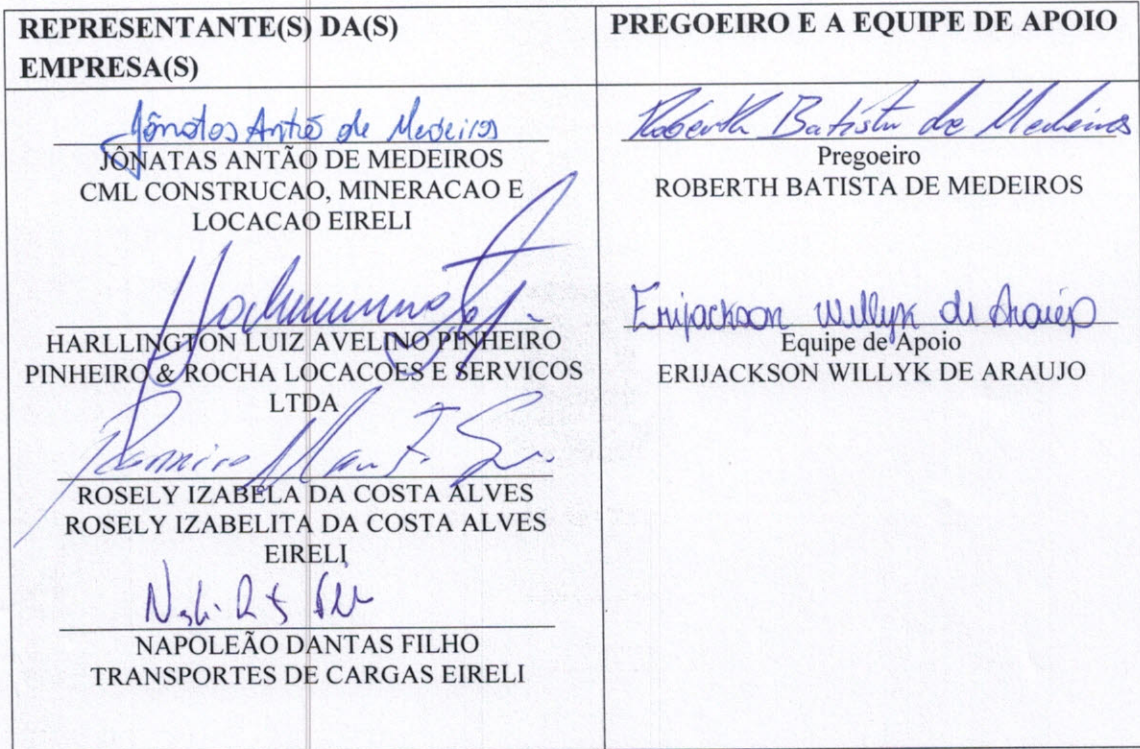 REPRESENTANTE(S) DA(S)
EMPRESA(S)
Jônatas Antão de Medeiros
JÔNATAS ANTÃO DE MEDEIROS
CML CONSTRUCAO, MINERACAO E
LOCACAO EIRELI
HARLLINGTON LUIZ AVELINO PINHEIRO
PINHEIRO & ROCHA LOCACOES E SERVICOS
LTDA
Ramiro
ROSELY IZABELA DA COSTA ALVES
ROSELY IZABELITA DA COSTA ALVES
EIRELI
NAPOLEÃO DANTAS FILHO
TRANSPORTES DE CARGAS EIRELI
PREGOEIRO E A EQUIPE DE APOIO
Roberth Batista de Medeiros
Pregoeiro
ROBERTH BATISTA DE MEDEIROS
Erijackson Willyk de Araújo
Equipe de Apoio
ERIJACKSON WILLYK DE ARAUJO